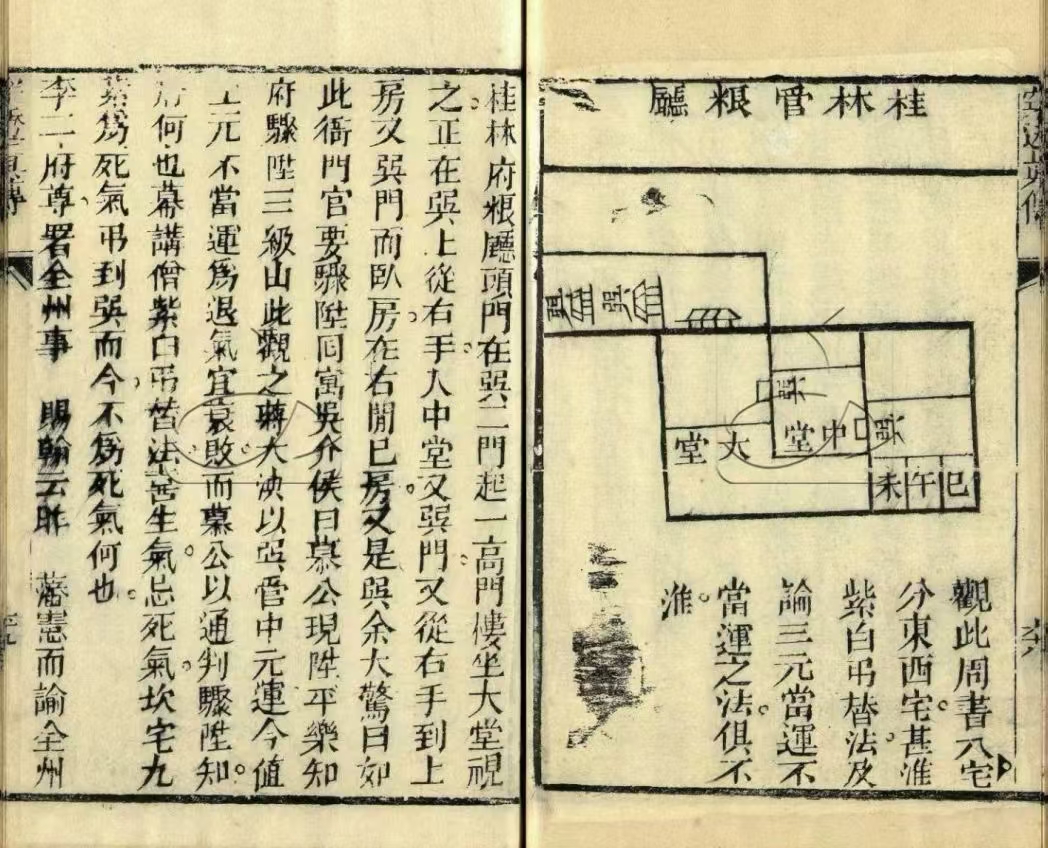 桂林管粮廳
巽
巽
巽
中堂
大堂
巽
巳午未
觀此周書八宅
分東西宅。甚准
紫白弔替法。及
論三元當運不
當運之法。俱不
准
桂林府粮廳頭門在巽二門起一高門樓坐大堂視
之正在巽上從右手入中堂又巽門又從右手到上
房又巽門而臥房。在右閒巳房。又是巽余大驚曰如
此衙門官要驟陞同寓吳介侯曰慕公現陞平樂知
府驟陞三級山此觀之蔣大泱以巽管中元運今值
上元不當運爲退氣宜衰敗而慕公以通判驟陞知。
府何也幕講僧紫白弔替法喜生氣。忌死氣。坎宅九
紫爲死氣弔到巽而今不爲死氣何也。
李二府尊署全州事 賜翰云昨 藩憲而諭全州